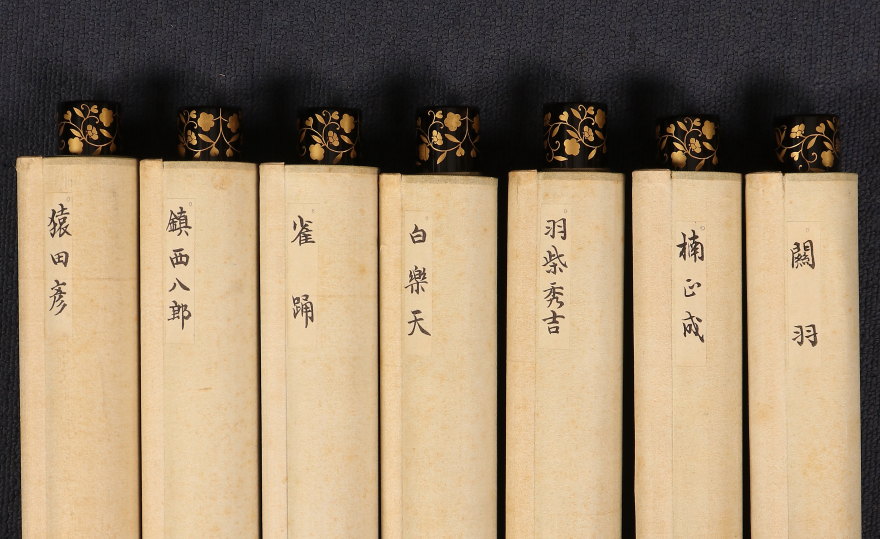 關羽
楠正成
羽柴秀吉
白樂天
雀踊
鎮西八郎
猿田彦